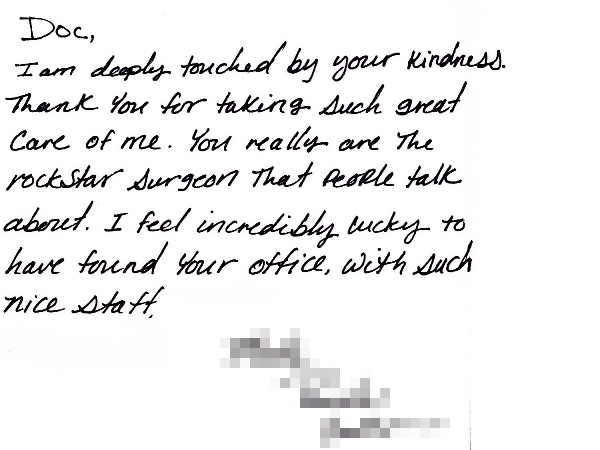 Doc,
I am deeply touched by your kindness.
Thank You for taking such great
Care of me. You really are The
rockstar surgeon That People talk
about. I feel incredibly lucky to
have found Your office, with such
nice staff.